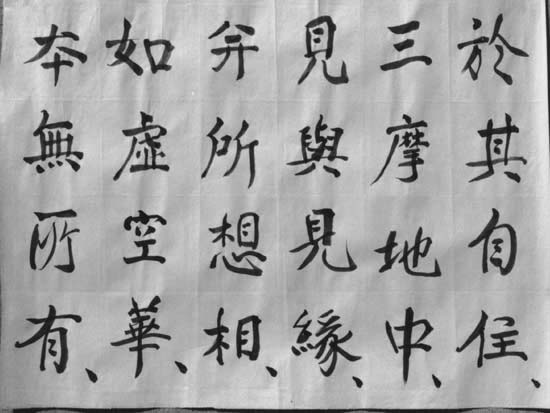 於其自住、
三摩地中、
見與見緣、
并所想相、
如虛空華、
本無所有、